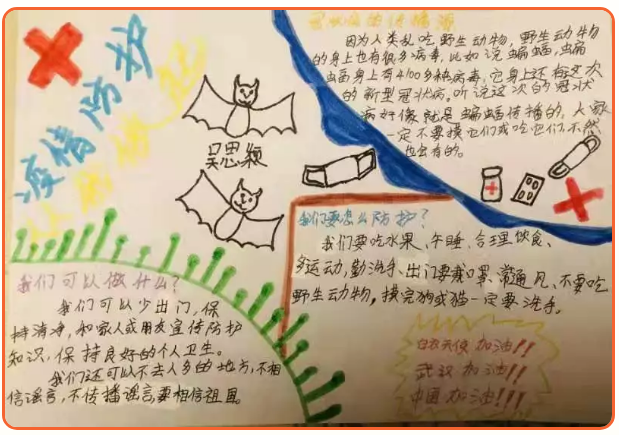 疫情防护
因为人类乱吃野生动物，野生动物
的身上也有很多病毒，比如说蝙蝠，蝙
蝠身上有4100多种病毒，它身上还有这次
的新型冠状病。听说这次的冠状
病好像就是蝙蝠传播的，大家
一定不要摸它们或吃它们，不然
也会有的。
吴思颖
我们要怎么防护？
我们要吃水果、午睡、合理饮食、
多运动，勤洗手、出门要戴口罩、常通风、不要吃
野生动物，摸完狗或猫一定要洗手。
我们可以做什么？
我们可以少出门，保
持清净，和家人或朋友宣传防护
知识，保持良好的个人卫生。
我们还可以不去人多的地方，不相
信谣言，不传播谣言，要相信祖国。
白衣天使 加油!!
武汉 加油!!!
中国 加油!!!